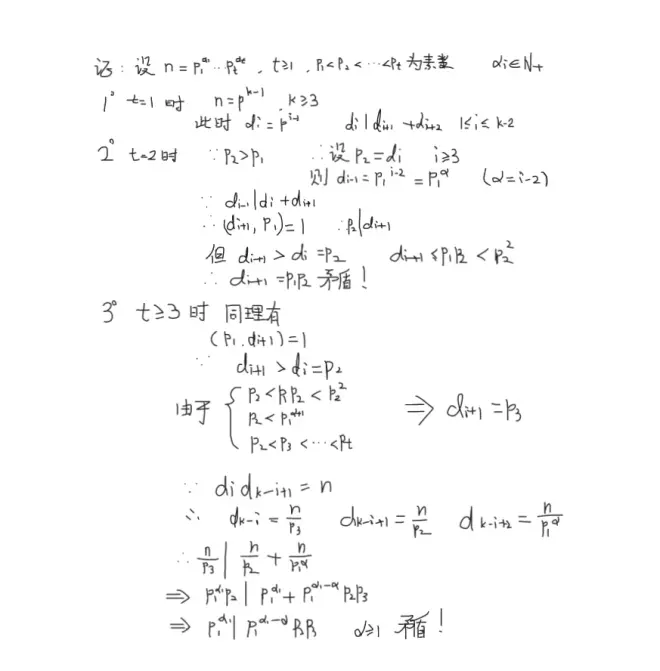 证：设 n = p₁^α₁ ⋯ pₜ^αt ，t≥1 ，p₁<p₂<⋯<pₜ 为素数 αi∈N₊
1° t=1 时 n=p^(k-1) , k≥3
此时 di=p^(i-1) di | di+1 + di+2 1≤i≤k-2
2° t=2 时 ∵ p₂>p₁ ∴ 设 p₂=di i≥3
则 di-1 = p₁^(i-2) = p₁^α (α=i-2)
∵ di-1 | di + di+1
∴ (di+1, p₁)=1 ∴ p₂ | di+1
但 di+1 > di = p₂ di+1 ≤ p₁p₂ < p₂²
∴ di+1 = p₁p₂ 矛盾！
3° t≥3 时 同理有
(p₁, di+1)=1
∵ di+1 > di = p₂
由于 { p₂<p₁p₂<p₂²
p₂<p₁^(α+1)
p₂<p₃<⋯<pt
⇒ di+1 = p₃
∵ di dk-i+1 = n
∴ dk-i = n/p₃ dk-i+1 = n/p₂ dk-i+2 = n/p₁^α
∴ n/p₃ | n/p₂ + n/p₁^α
⇒ p₁^α₁ p₂ | p₁^α₁ + p₁^(α₁-α) p₂p₃
⇒ p₁^α₁ | p₁^(α₁-α) p₂p₃ α≥1 矛盾！